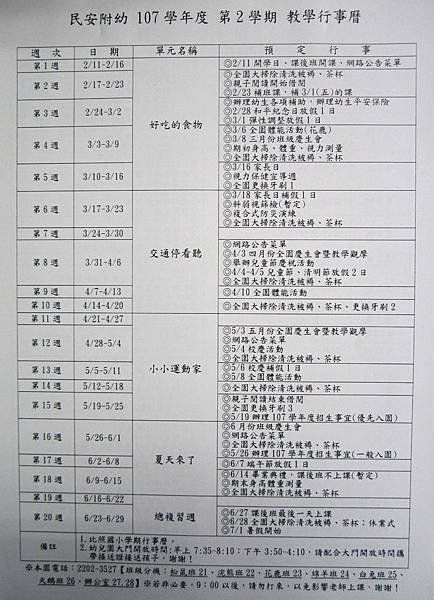 民安附幼 107 學年度 第 2 學期 教學行事曆
週 次 日 期 單元名稱 預 定 行 事
第 1 週 2/11-2/16 ◎2/11 開學日，課後班開課、網路公告菜單
◎全園大掃除清洗被褥、茶杯
第 2 週 2/17-2/23 ◎親子閱讀開始借閱
◎2/23 補班課，補 3/1(五)的課
◎辦理幼生各項補助，辦理幼生平安保險
第 3 週 2/24-3/2 ◎2/28 和平紀念日放假 1 日
◎3/1 彈性調整放假 1 日
好吃的食物
◎3/6 全園體能活動(花鹿)
第 4 週 3/3-3/9 ◎3/8 三月份班級慶生會
◎期初身高、體重、視力測量
◎全園大掃除清洗被褥、茶杯
◎3/16 家長日
第 5 週 3/10-3/16 ◎視力保健宣導週
◎全園更換牙刷 1
◎3/18 家長日補假 1 日
第 6 週 3/17-3/23 ◎斜弱視篩檢(暫定)
◎複合式防災演練
◎全園大掃除清洗被褥、茶杯
第 7 週 3/24-3/30
交通停看聽
◎網路公告菜單
第 8 週 3/31-4/6 ◎4/3 四月份全園慶生會暨教學觀摩
◎舉辦兒童節慶祝活動
◎4/4-4/5 兒童節、清明節放假 2 日
◎全園大掃除清洗被褥、茶杯
第 9 週 4/7-4/13 ◎4/10 全園體能活動
第 10 週 4/14-4/20 ◎全園大掃除清洗被褥、茶杯、更換牙刷 2
第 11 週 4/21-4/27
◎5/3 五月份全園慶生會暨教學觀摩
第 12 週 4/28-5/4 ◎網路公告菜單
◎5/4 校慶活動
◎全園大掃除清洗被褥、茶杯
第 13 週 5/5-5/11 小小運動家 ◎5/6 校慶補假 1 日
◎5/8 全園體能活動
第 14 週 5/12-5/18 ◎全園大掃除清洗被褥、茶杯
◎親子閱讀結束借閱
第 15 週 5/19-5/25 ◎全園更換牙刷 3
◎5/19 辦理 107 學年度招生事宜(優先入園)
◎6 月份班級慶生會
第 16 週 5/26-6/1 ◎網路公告菜單
◎全園大掃除清洗被褥、茶杯
◎5/26 辦理 107 學年度招生事宜(一般入園)
第 17 週 6/2-6/8 夏天來了 ◎6/7 端午節放假 1 日
◎6/14 畢業典禮，課後班不上課(暫定)
第 18 週 6/9-6/15 ◎期末身高體重測量
◎全園大掃除清洗被褥、茶杯
第 19 週 6/16-6/22
第 20 週 6/23-6/29 總複習週 ◎6/27 課後班最後一天上課
◎6/28 全園大掃除清洗被褥、茶杯；休業式
◎7/1 暑假開始
備註 1.比照國小學期行事曆。
2.幼兒園大門開放時間：早上 7:35-8:10；下午 3:50-4:10，請配合大門開放時間攜
帶接送證接送孩子，謝謝！
※本園電話：2202-3527【班級分機：松鼠班 21、浣熊班 22、花鹿班 23、綿羊班 24、白兔班 25、
天鵝班 26、辦公室 27,28】※若非必要，9：00 以後，請勿打來，以免影響老師上課，謝謝！